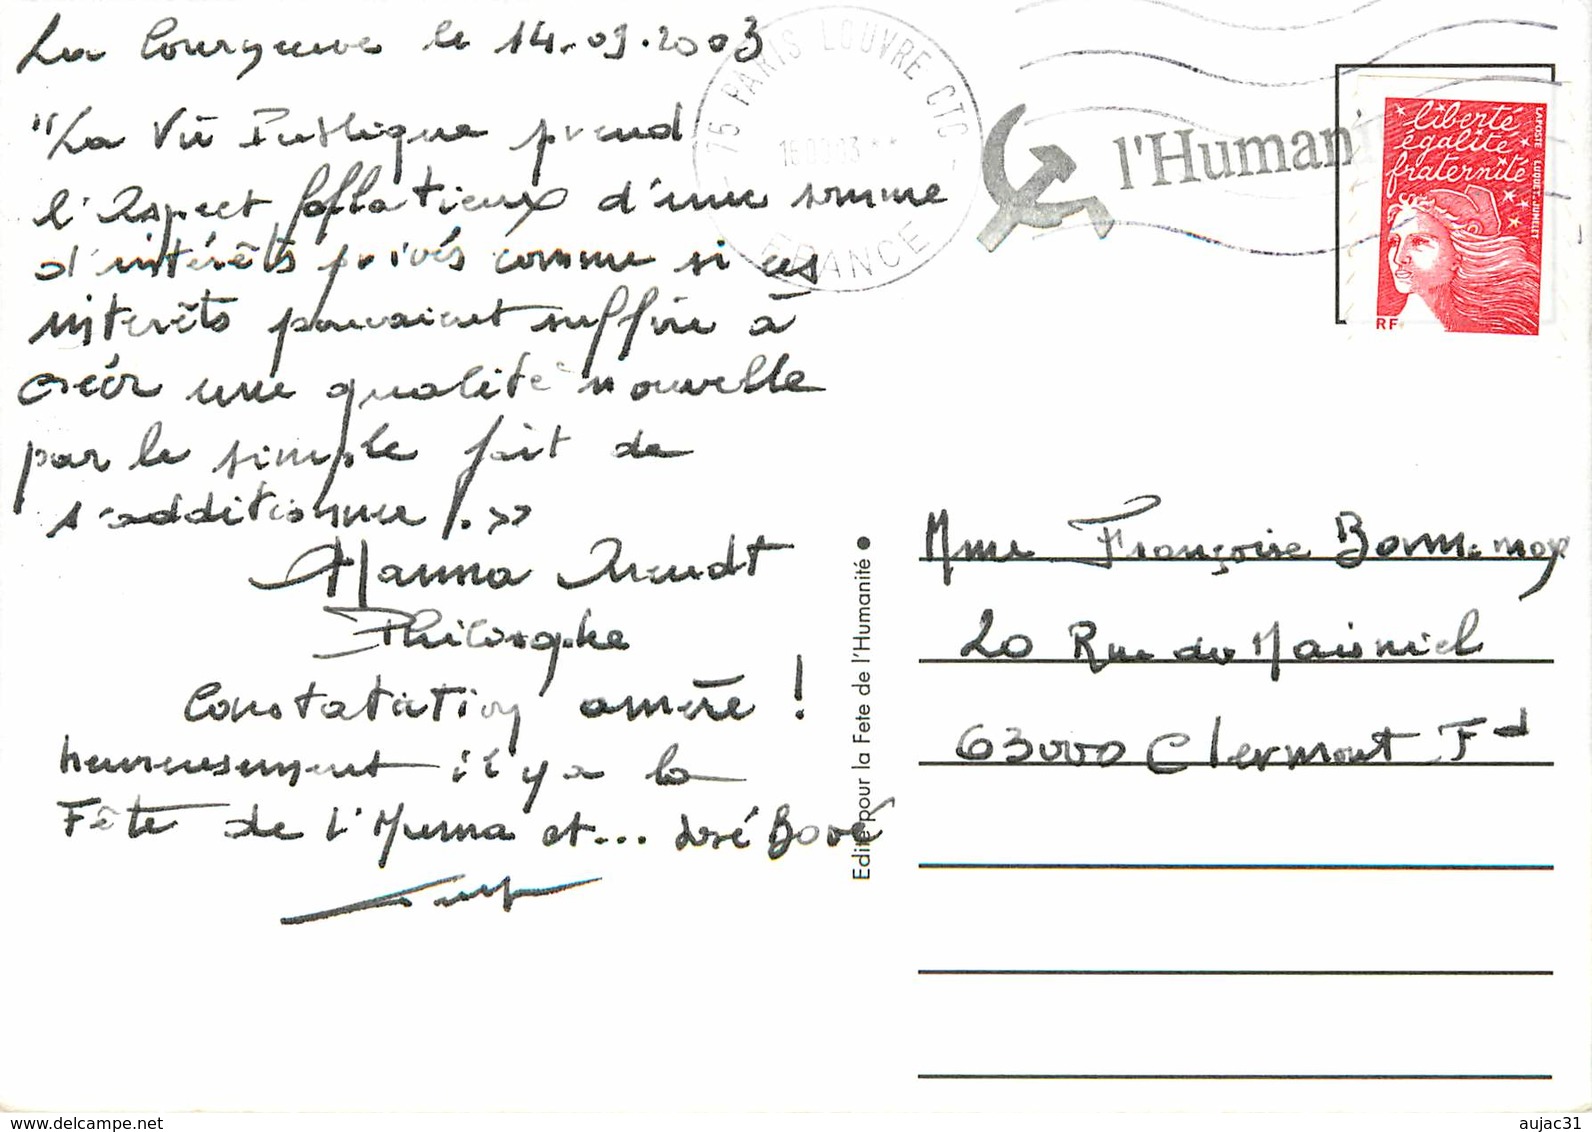 La Courneuve le 14.09.2003
"La Vie Publique prend
l'aspect fallacieux d'une somme
d'intérêts privés comme si ces
intérêts pouvaient suffire à
créer une qualité nouvelle
par le simple fait de
s'additionner.»
Hanna Arendt
Philosophe
Constatation amère !
heureusement il y a la
Fête de l'Huma et... José Bové
75 PARIS LOUVRE CTC
FRANCE
l'Humani
liberté
égalité
fraternité
RF
LA POSTE LUQUET-JUMELET
Edité pour la Fete de l'Humanité
Mme Françoise
20 Rue du Maisniel
63000 Clermont Fd
www.delcampe.net
aujac31